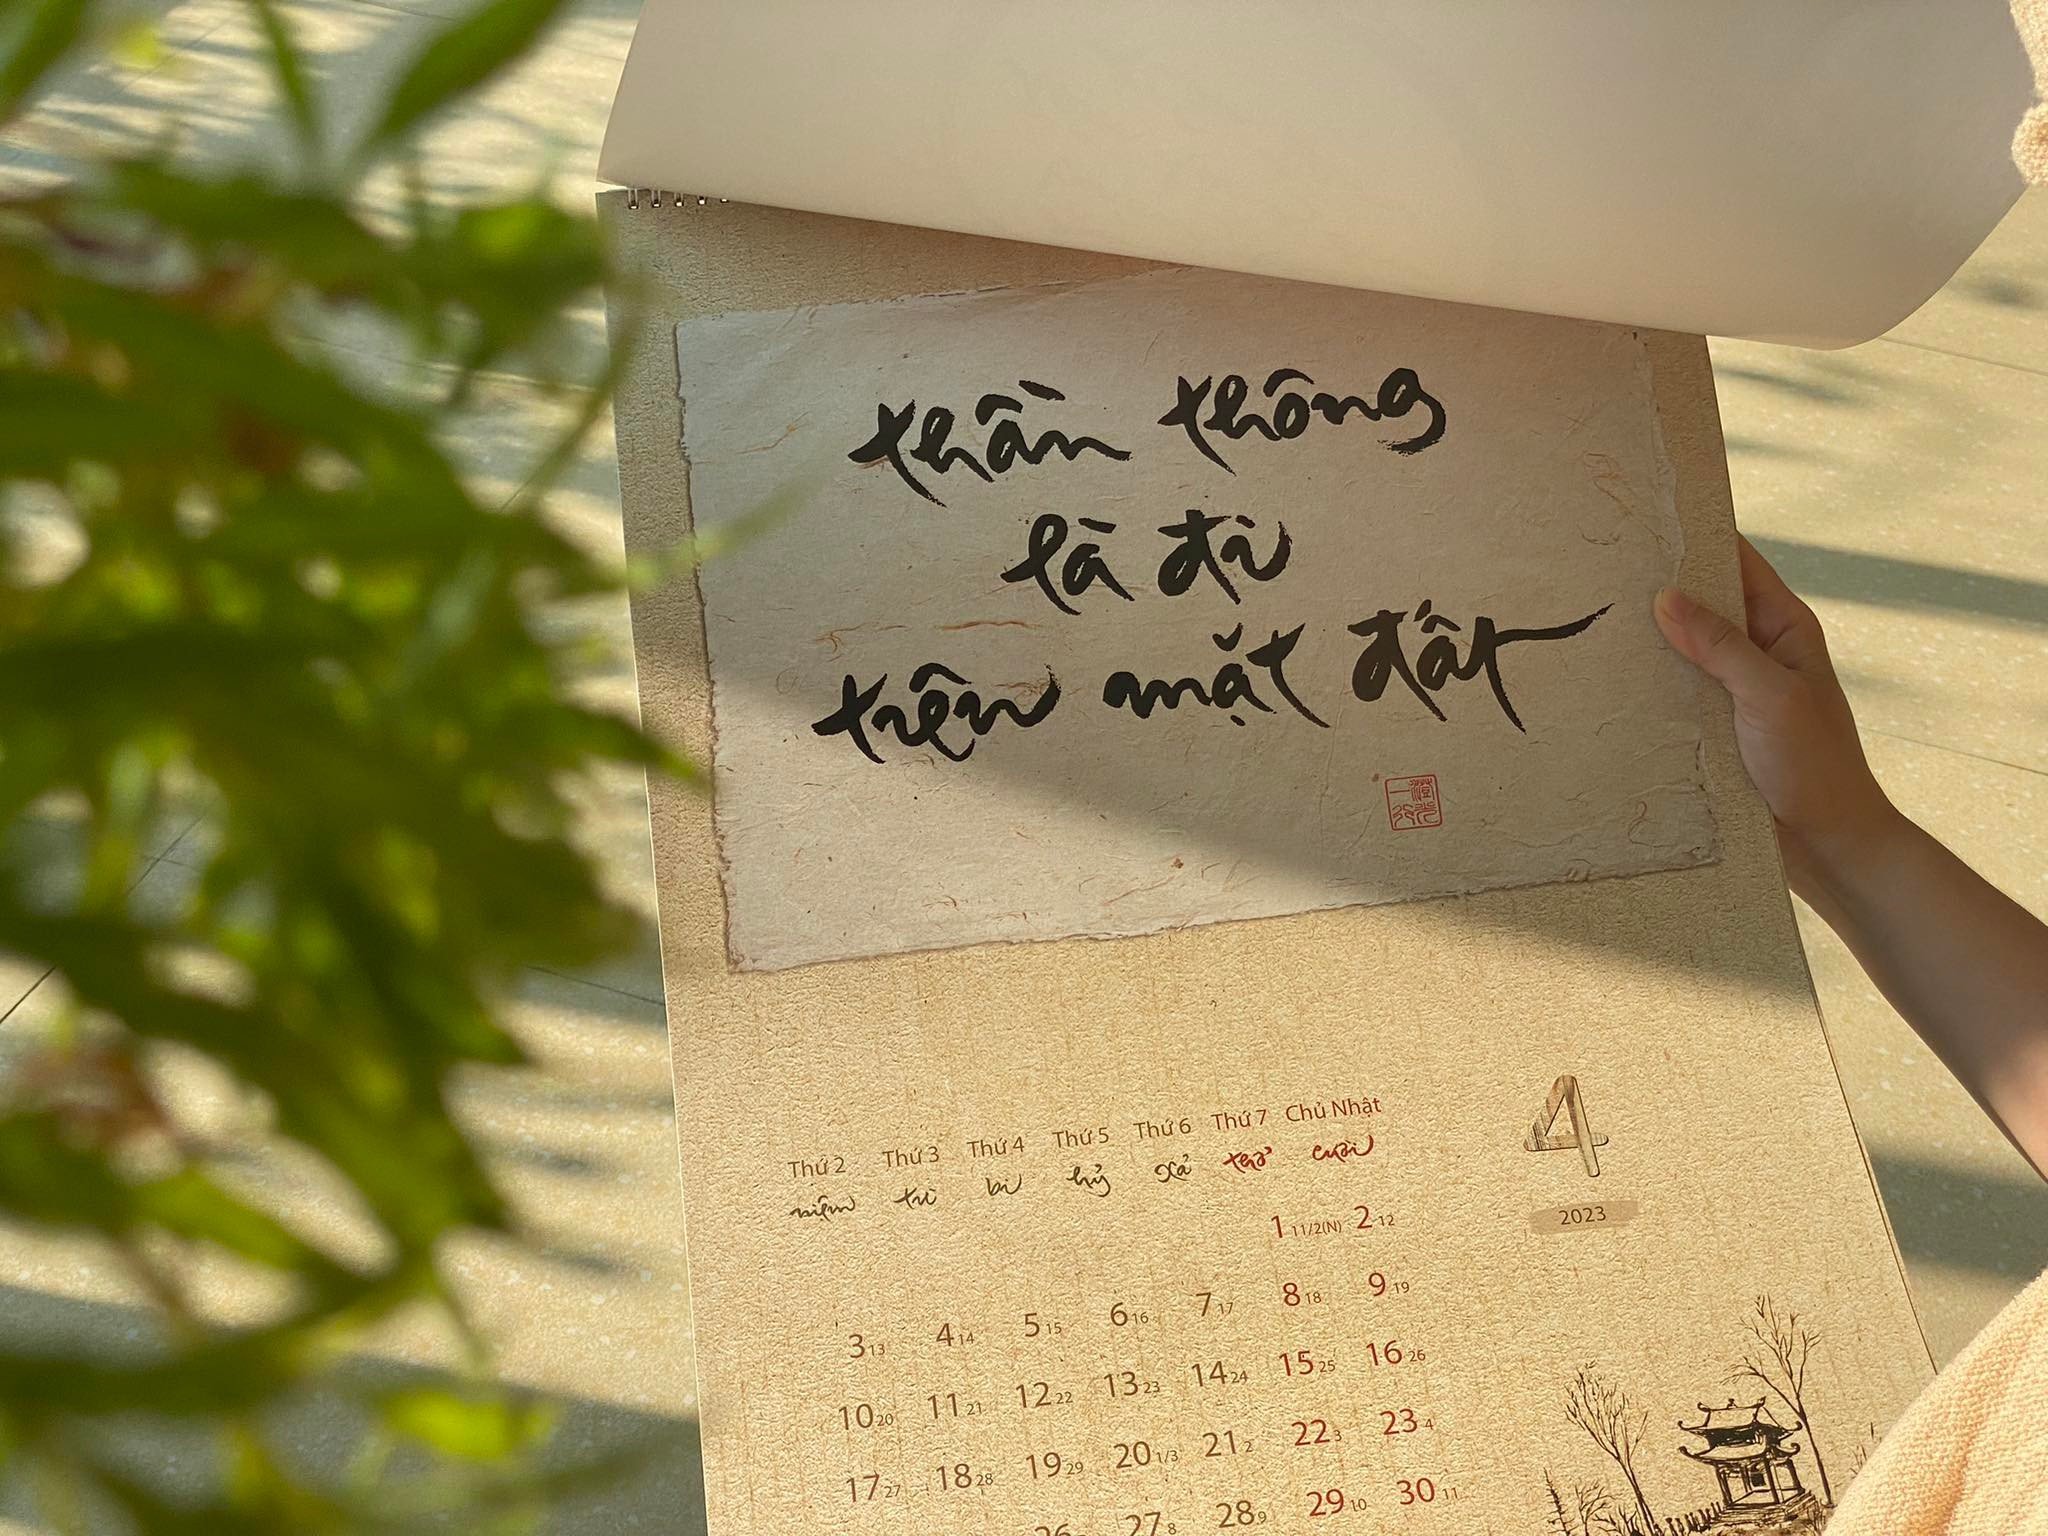 thần thông
là đi
trên mặt đất
一行 澄光
4
2023
Thứ 2 Thứ 3 Thứ 4 Thứ 5 Thứ 6 Thứ 7 Chủ Nhật
niệm từ bi hỷ xả thở cười
1 11/2(N) 2 12
3 13 4 14 5 15 6 16 7 17 8 18 9 19
10 20 11 21 12 22 13 23 14 24 15 25 16 26
17 27 18 28 19 29 20 1/3 21 2 22 3 23 4
26 27 8 28 9 29 10 30 11